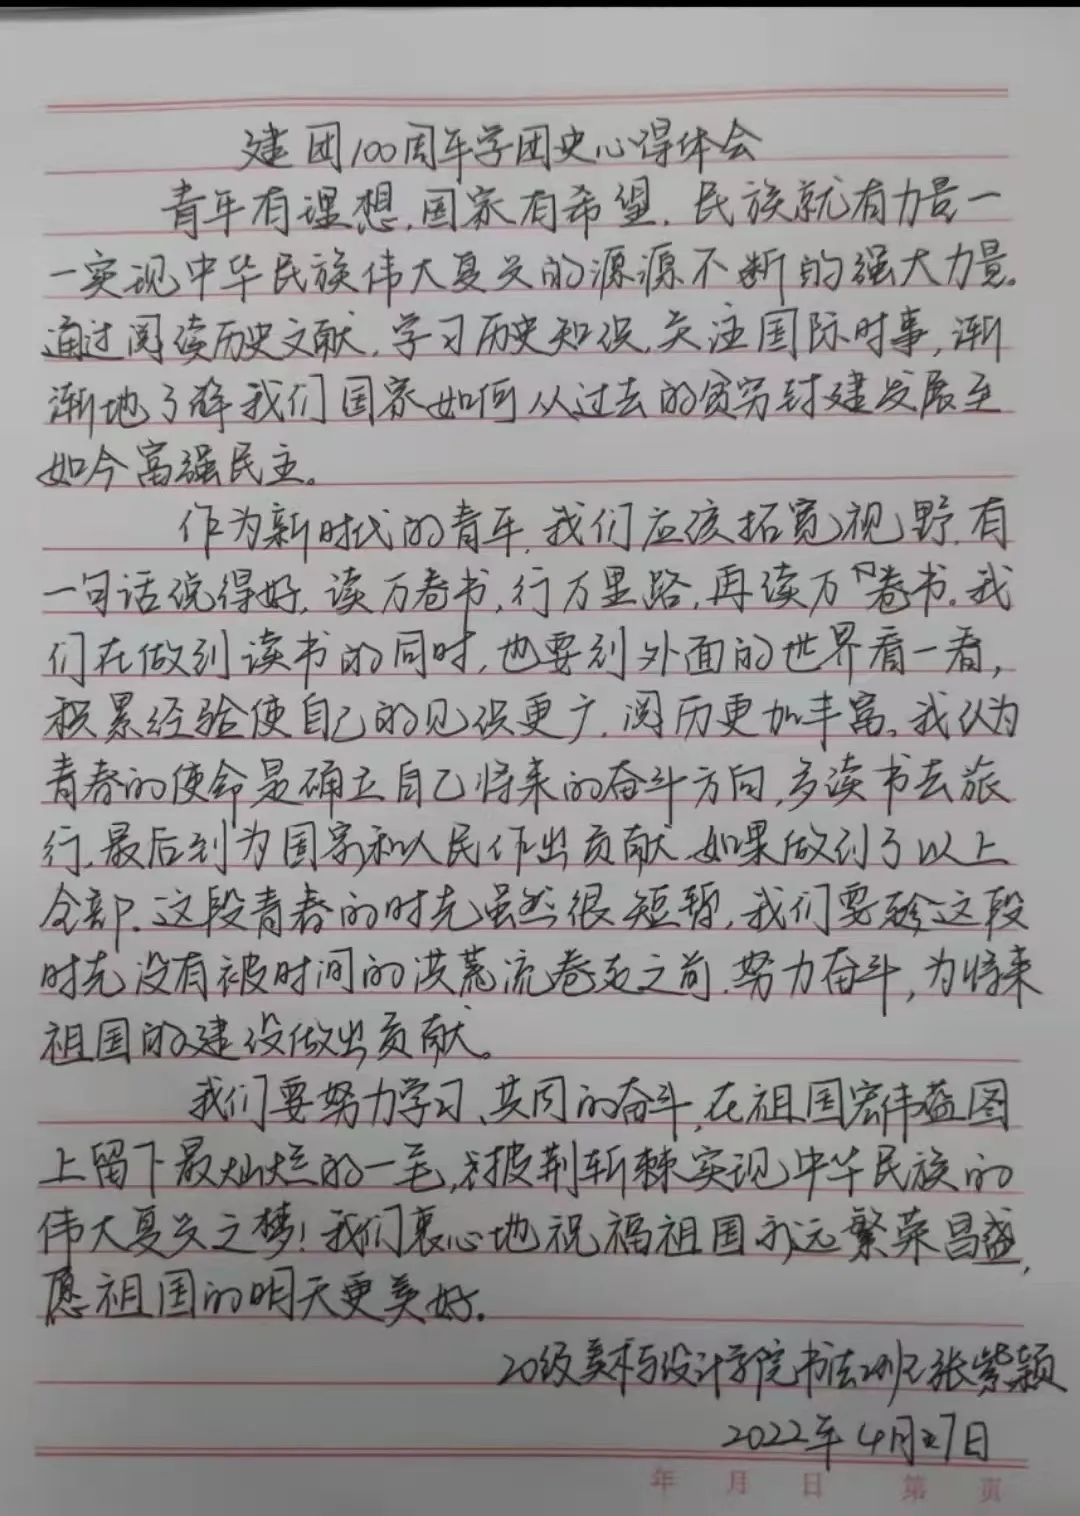 建团100周年学团史心得体会
青年有理想，国家有希望，民族就有力量一
一实现中华民族伟大复兴的源源不断的强大力量。
通过阅读历史文献，学习历史知识，关注国际时事，渐
渐地了解我们国家如何从过去的贫穷封建发展至
如今富强民主。
作为新时代的青年，我们应该拓宽视野，有
一句话说得好，读万卷书，行万里路，再读万卷书。我
们在做到读书的同时，也要到外面的世界看一看，
积累经验使自己的见识更广，阅历更加丰富。我认为
青春的使命是确立自己将来的奋斗方向，多读书去旅
行，最后到为国家和人民作出贡献，如果做到了以上
全部，这段青春的时光虽然很短暂，我们要趁这段
时光没有被时间的洪荒流卷走之前，努力奋斗，为将来
祖国的建设做出贡献。
我们要努力学习、共同的奋斗，在祖国宏伟蓝图
上留下最灿烂的一笔，披荆斩棘实现中华民族的
伟大复兴之梦！我们衷心地祝福祖国永远繁荣昌盛，
愿祖国的明天更美好。
20级美术与设计学院书法2班张紫颖
2022年4月27日
年 月 日 第 页